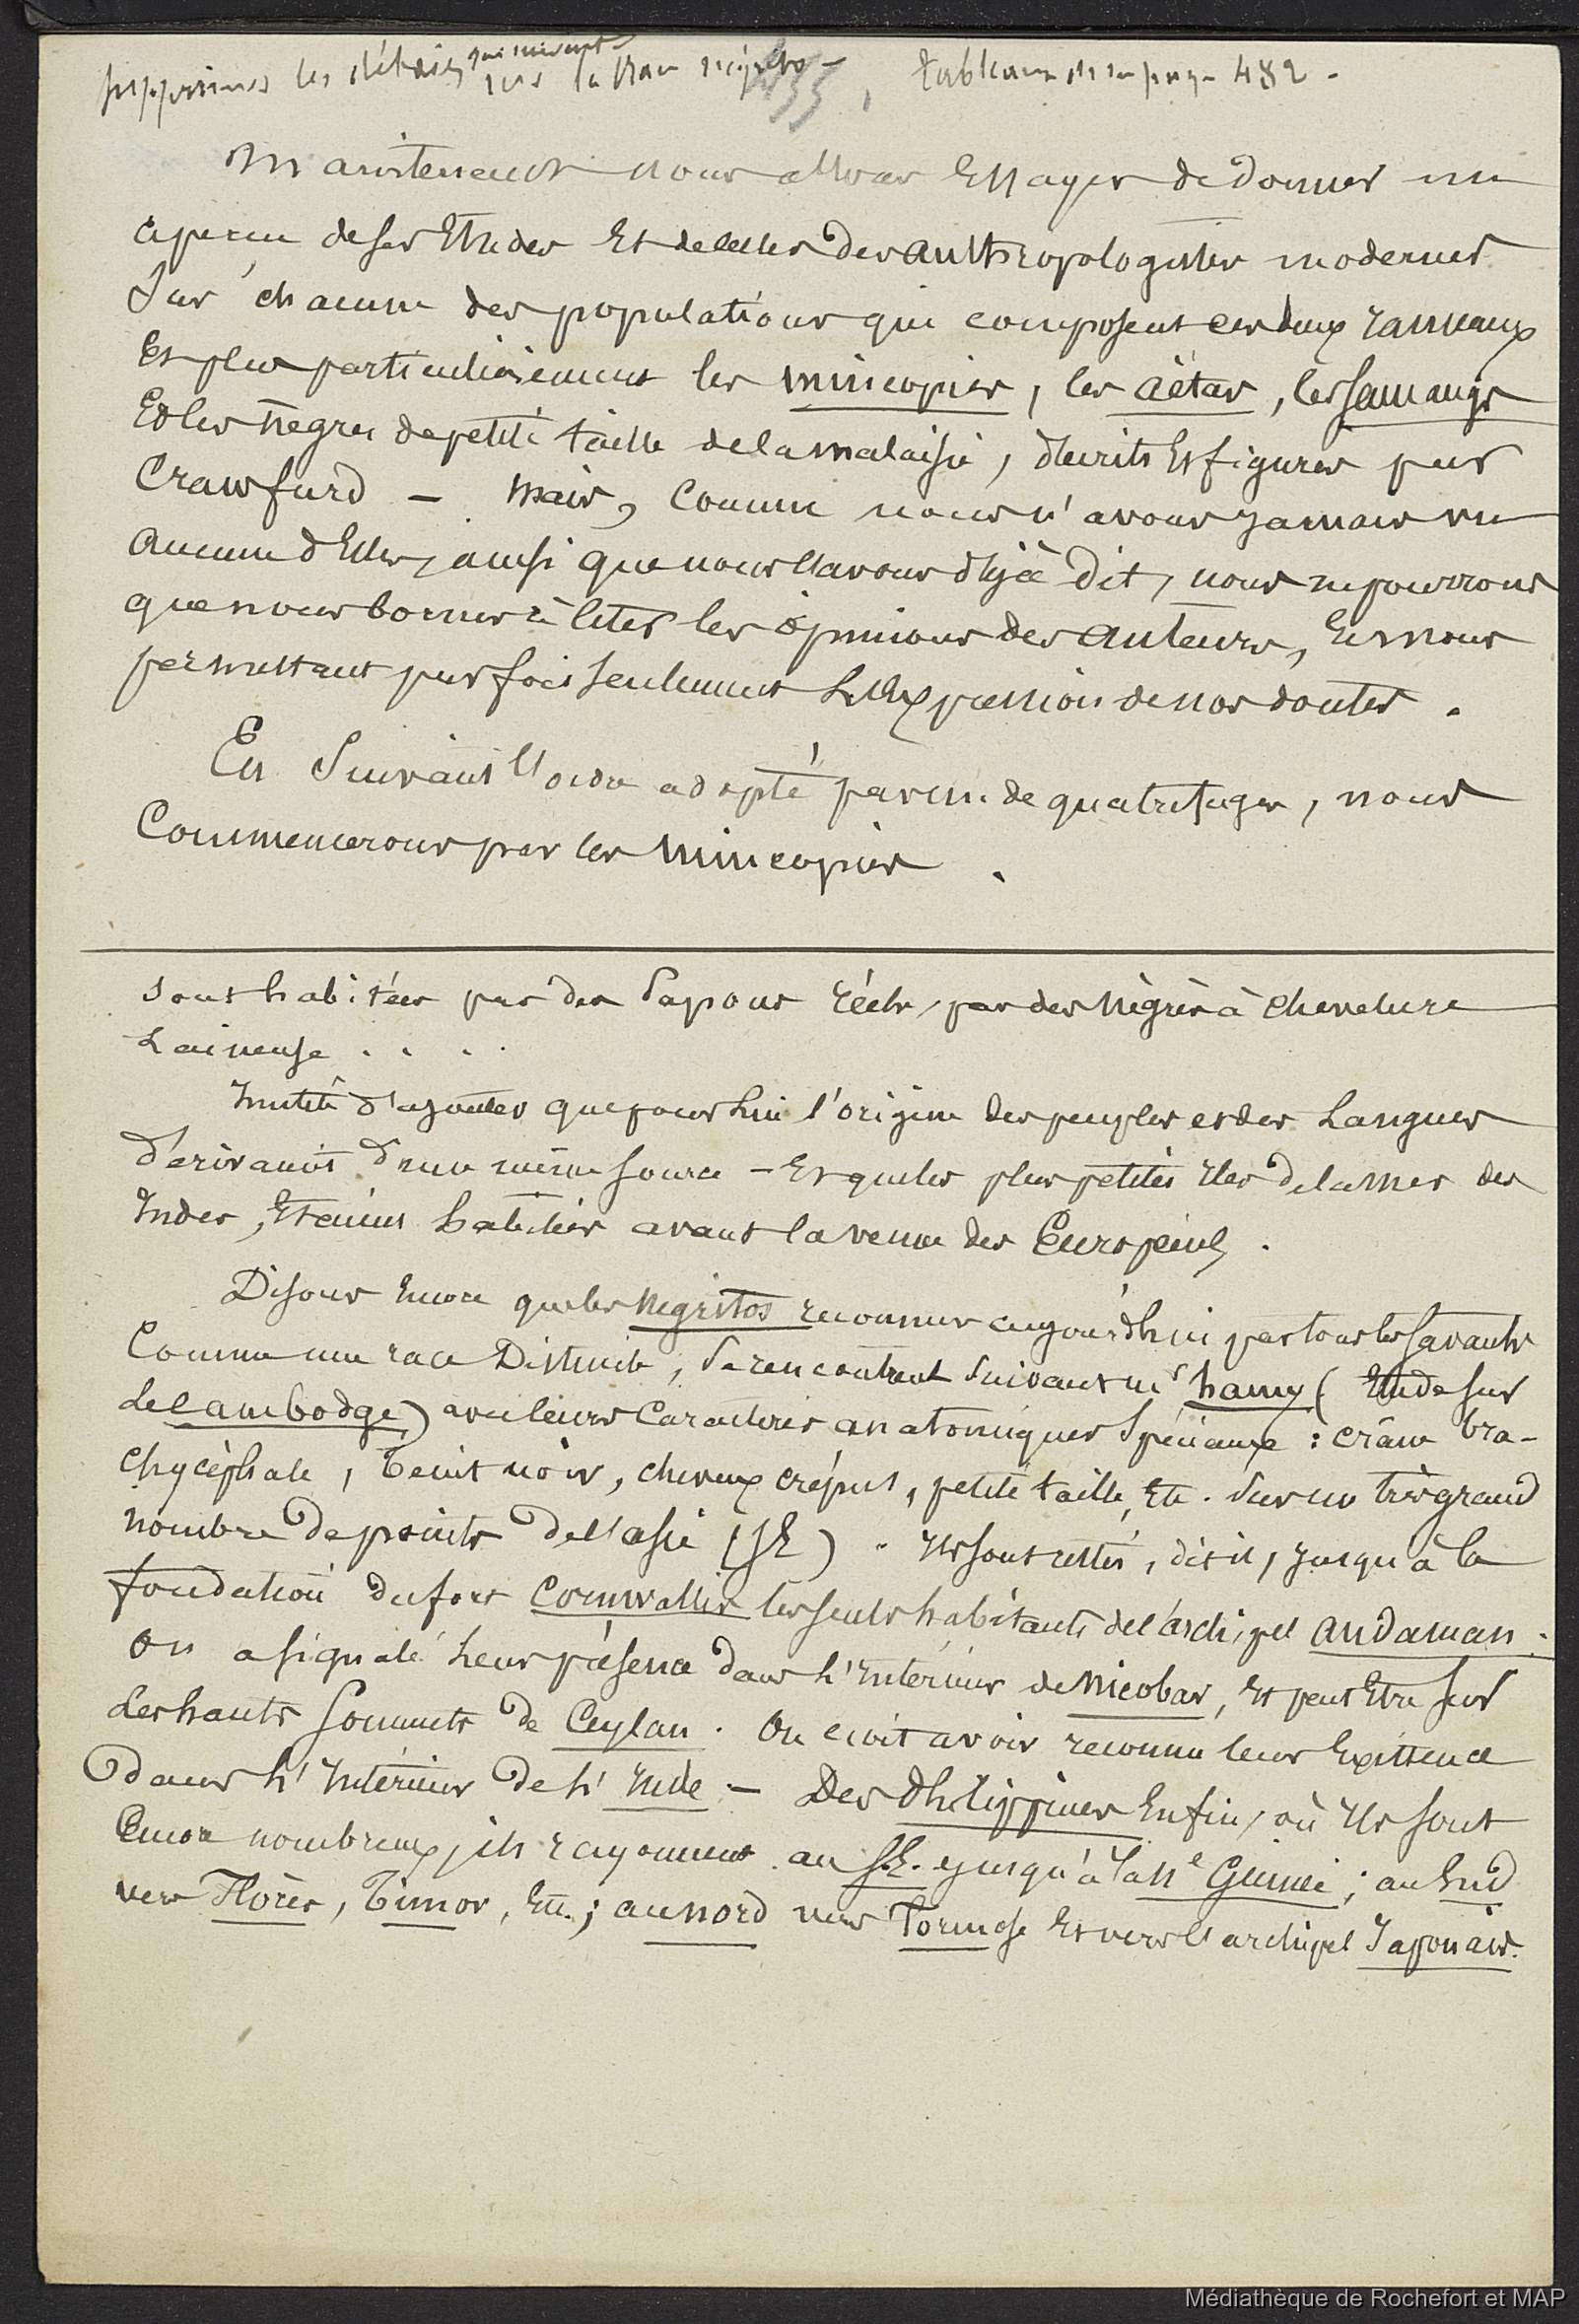 supprimer les détails qui suivent sur la race négrito - tableaux de la page 482 -
455
Maintenant nous allons Essayer de donner un
aperçu de ses Etudes Et de celles des anthropologistes modernes
Sur chacune des populations qui composent ces deux rameaux
Et plus particulièrement les mincopies, les aëtas, les samangs
Et les Nègres de petite taille de la malaisie, décrits Et figurés par
Crawfurd - mais, Comme nous n'avons jamais vu
aucune d'Elles, ainsi que nous l'avons déjà dit, nous ne pourrons
que nous borner à citer les opinions des auteurs, En nous
permettant parfois seulement L'Expression de nos doutes.
En Suivant l'ordre adopté par m. de quatrefages, nous
Commencerons par les Mincopies.
sont habitées par des Papous réels, par des Nègres à chevelure
Laineuse . . . .
Inutile d'ajouter que pour Lui l'origine des peuples et des Langues
dérivaient d'une même source - Et que les plus petites Iles de la mer des
Indes, Etaient habitées avant la venue des Européens.
Disons Encore que les Négritos reconnus aujourd'hui par tous les Savants
Comme une race Distincte, Se rencontrent Suivant mr hamy (Etude sur
Le Cambodge) avec leurs Caractères anatomiques Spéciaux : crâne bra-
chycéphale, teint noir, cheveux crépus, petite taille, Etc. Sur un très grand
nombre de points de l'asie (SE). Ils sont restés, dit il, jusqu'à la
fondation du fort Cornwallis les seuls habitants de l'archipel andaman.
On a signalé Leur présence dans L'Intérieur de Nicobar, Et peut Etre sur
Les hauts Sommets de Ceylan. On croit avoir reconnu leur Existence
dans L'Intérieur de L'Inde - Des Philippines Enfin, où Ils sont
Encore nombreux, ils rayonnent au S.E. jusqu'à la Nle Guinée ; au Sud
vers Florès, Timor, Etc. ; au nord vers Formose Et vers l'archipel Japonais.
Médiathèque de Rochefort et MAP